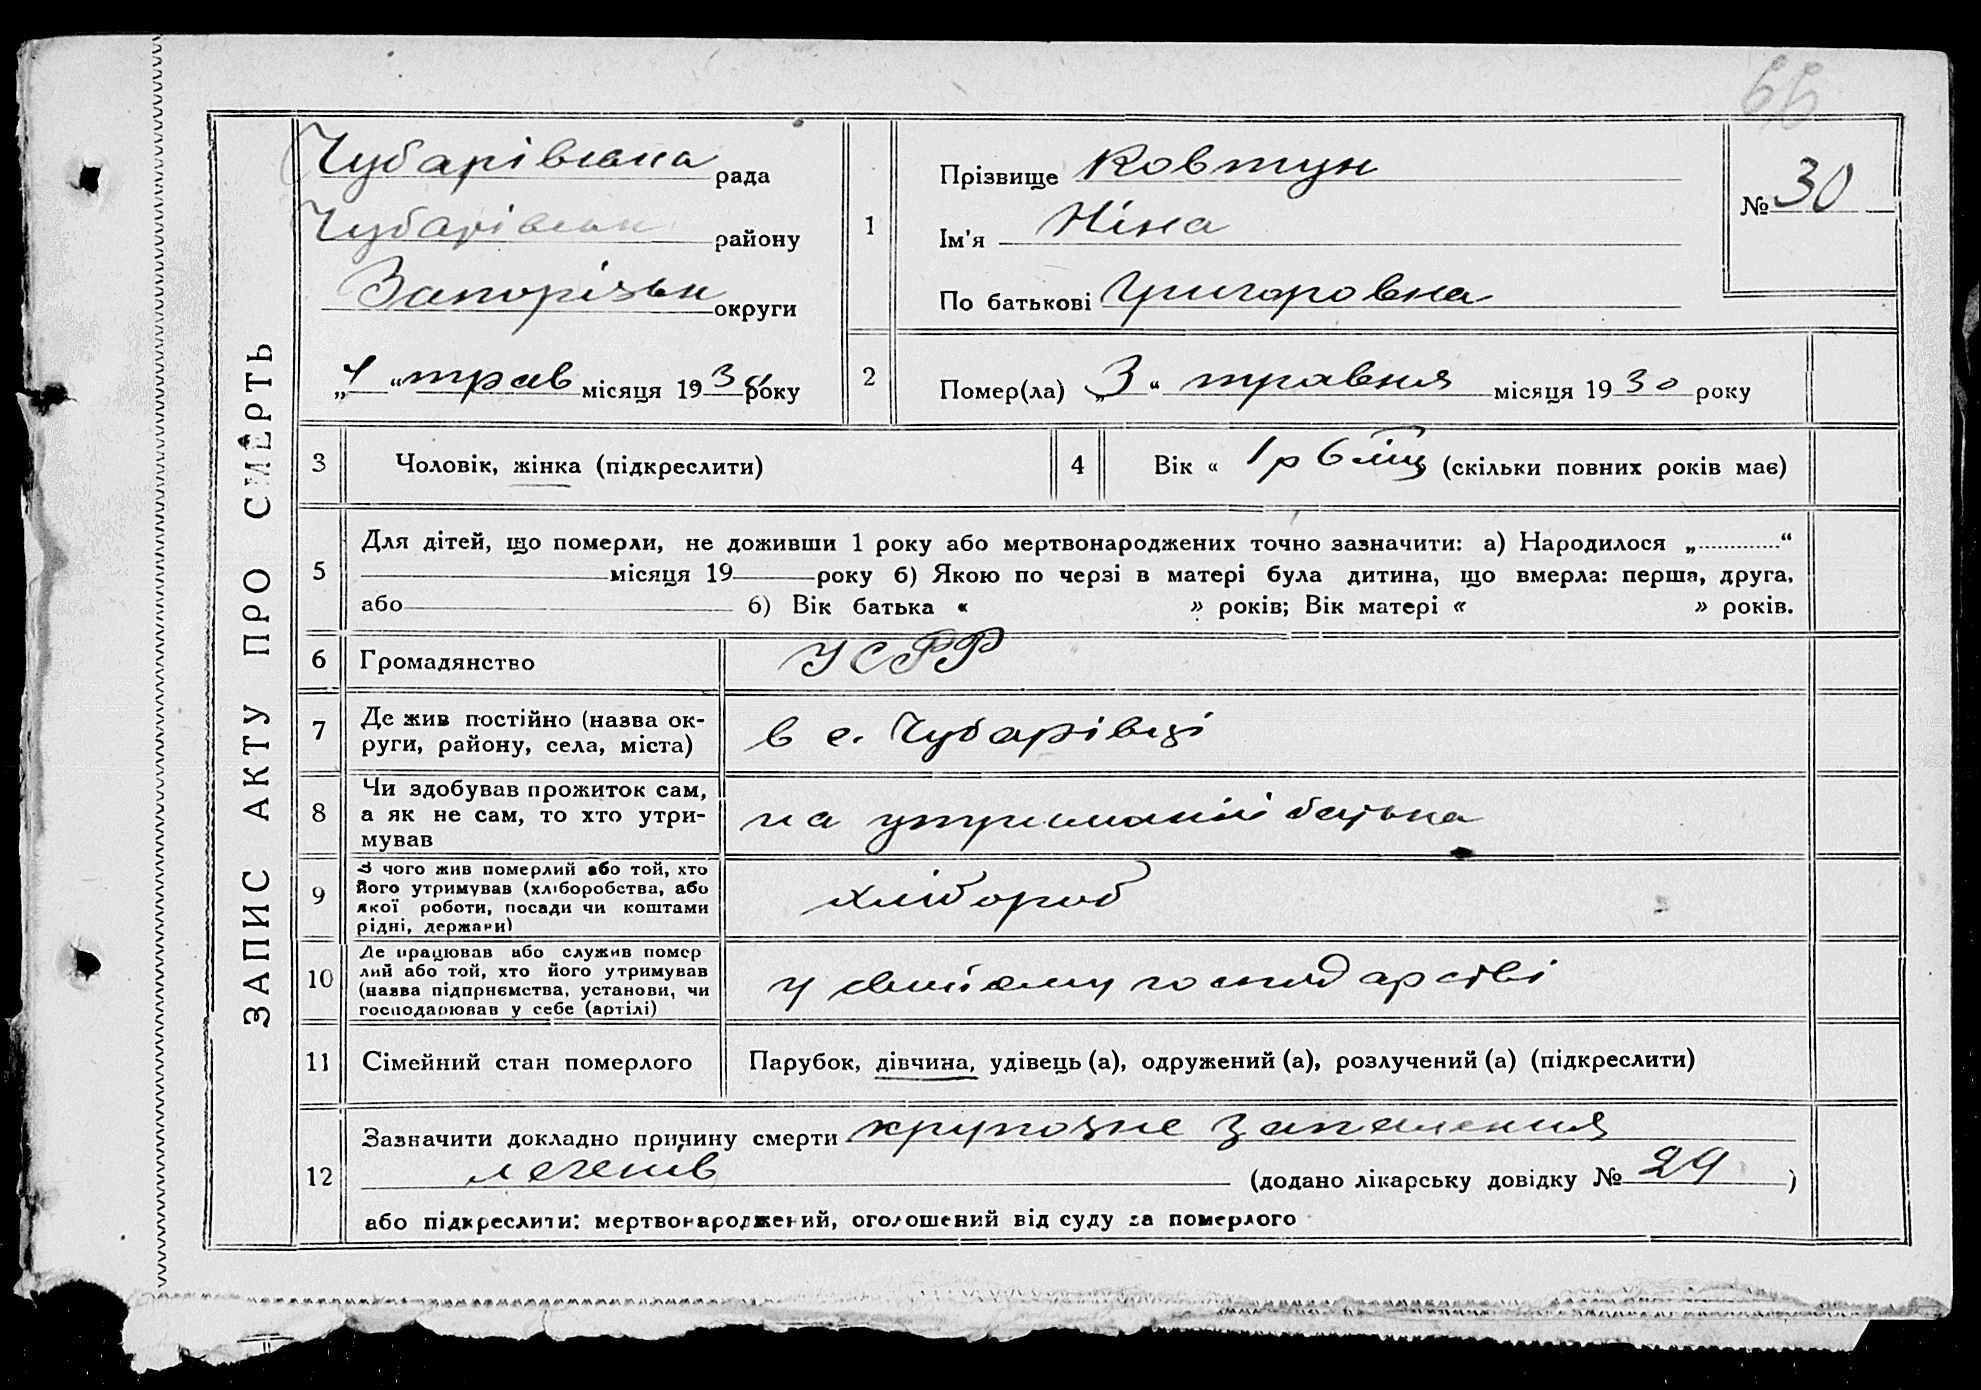 66
ЗАПИС АКТУ ПРО СМЕРТЬ
Чубарівська рада
Чубарівськ району
Запорізьк округи
„4“ трав місяця 1930 року
1
Прізвище Ковтун
Ім'я Ніна
По батькові Григоровна
№ 30
2
Помер(ла) „3“ травня місяця 1930 року
3
Чоловік, жінка (підкреслити)
4
Вік « 1 р 6 міц (скільки повних років має)
5
Для дітей, що померли, не доживши 1 року або мертвонароджених точно зазначити: а) Народилося „ “
місяця 19 року б) Якою по черзі в матері була дитина, що вмерла: перша, друга,
або б) Вік батька « » років; Вік матері « » років.
6
Громадянство
УСРР
7
Де жив постійно (назва ок-
руги, району, села, міста)
в с. Чубарівці
8
Чи здобував прожиток сам,
а як не сам, то хто утри-
мував
на утриманні батька
9
З чого жив померлий або той, хто
його утримував (хліборобства, або
якої роботи, посади чи коштами
рідні, держави)
хлібороб
10
Де працював або служив помер
лий або той, хто його утримував
(назва підприємства, установи, чи
господарював у себе (артілі)
у своїому господарстві
11
Сімейний стан померлого
Парубок, дівчина, удівець (а), одружений (а), розлучений (а) (підкреслити)
12
Зазначити докладно причину смерти крупозне запалення
легенів (додано лікарську довідку № 29 )
або підкреслити: мертвонароджений, оголошений від суду за померлого